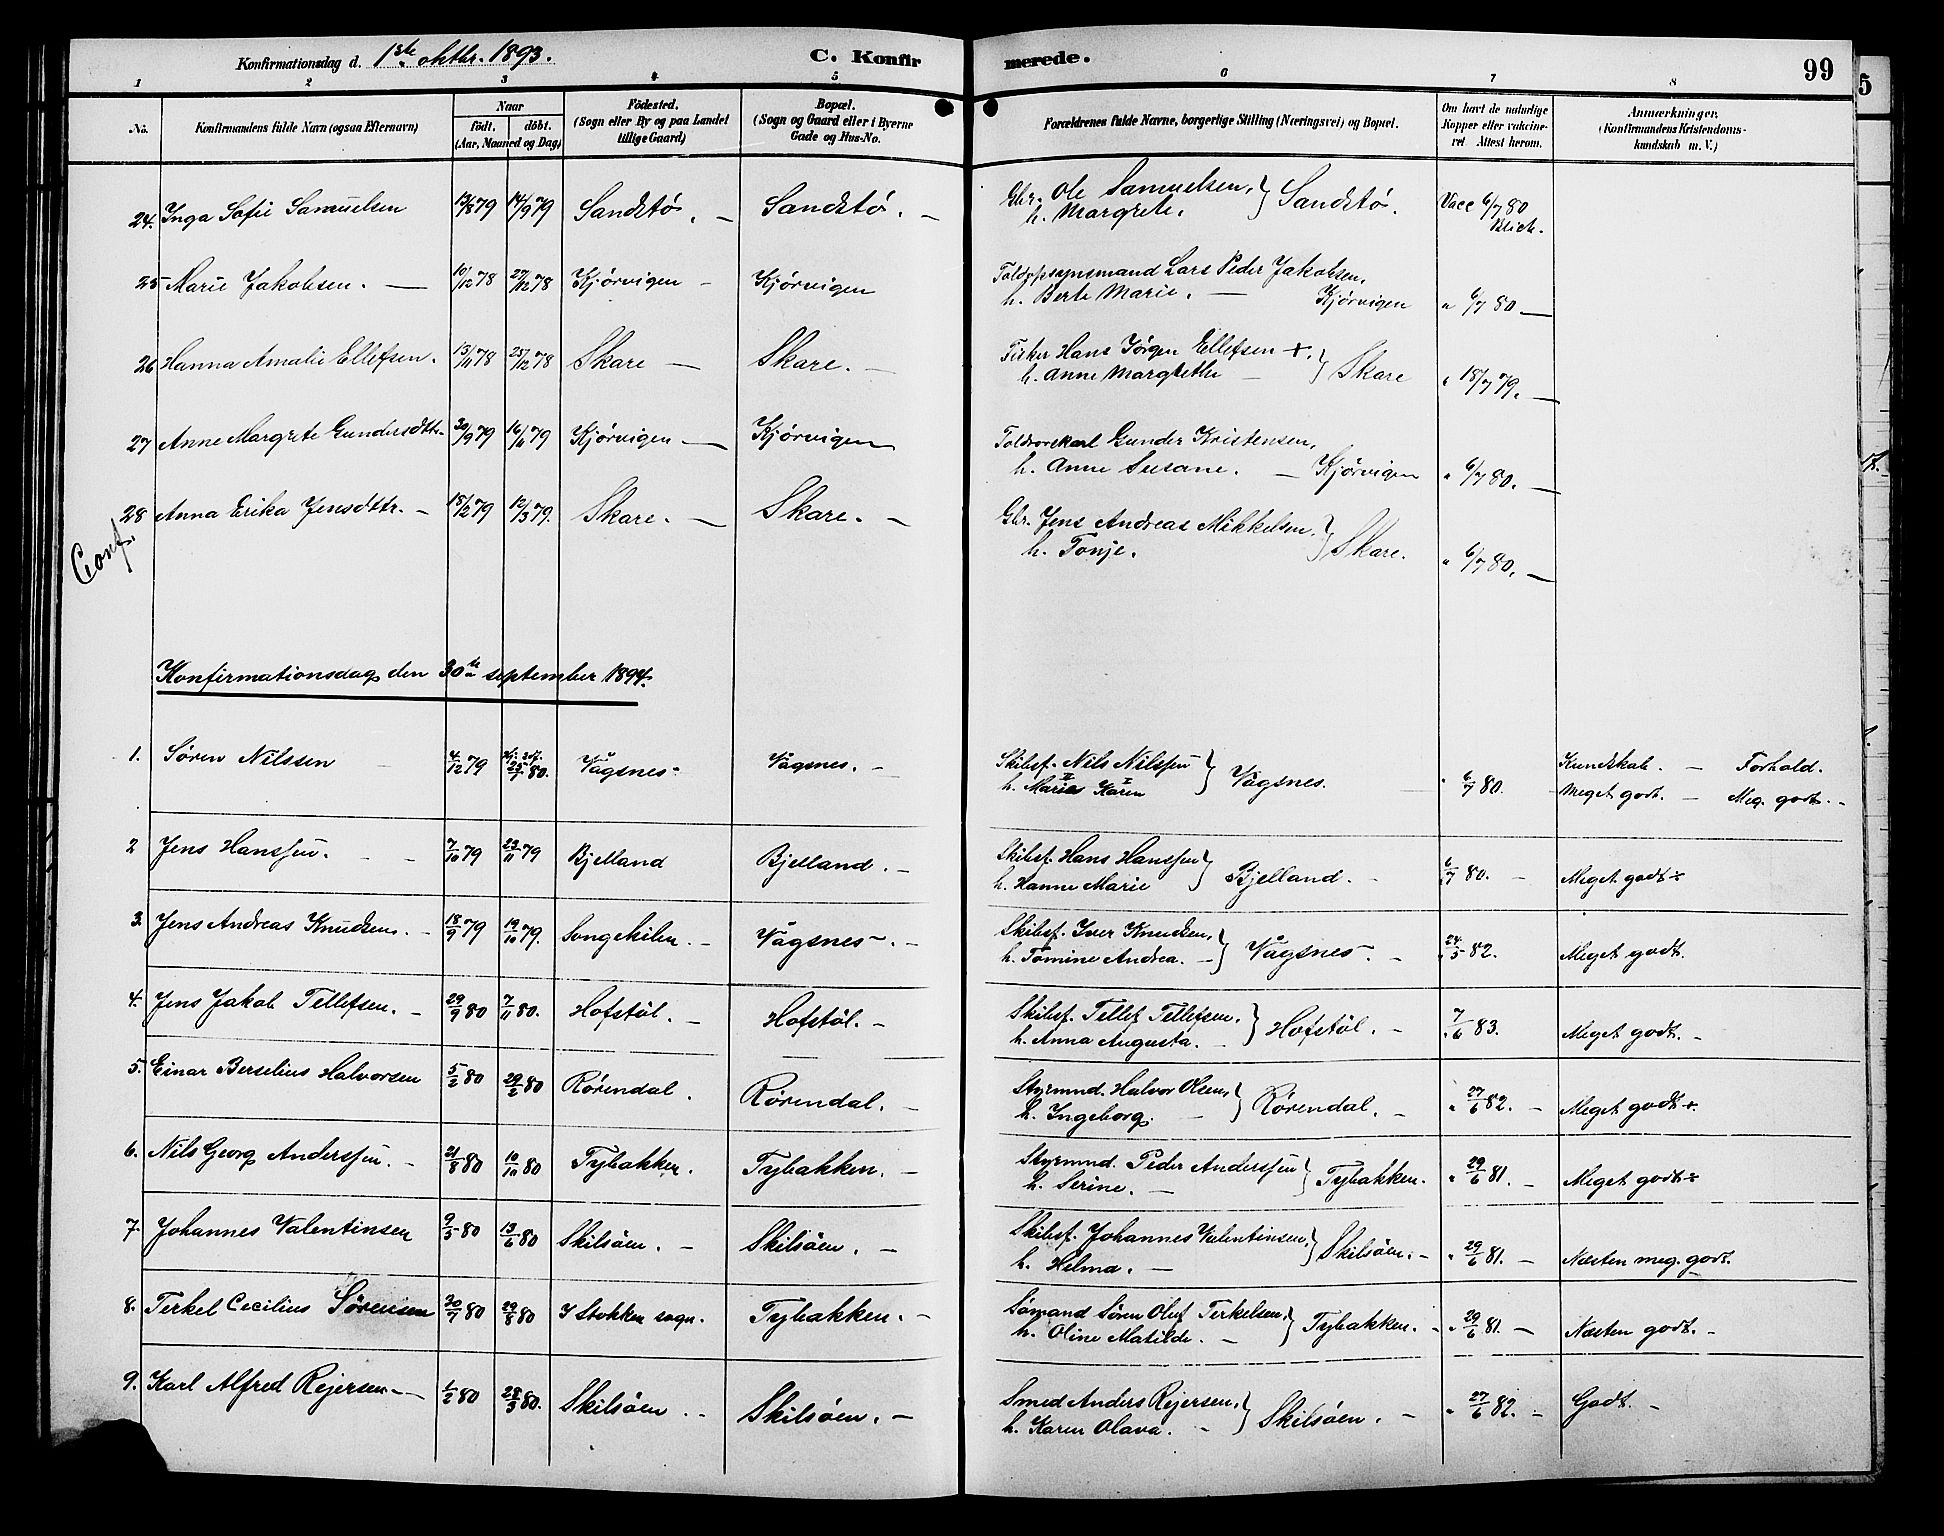 Konfirmationsdag d. 1ste oktbr. 1893. C. Konfirmerede. 99
1 2 3 4 5 6 7 8
No. Konfirmandens fulde Navn (ogsaa Efternavn) Naar födt. döbt. (Aar, Maaned og Dag) Födested. (Sogn eller By og paa Landet tillige Gaard) Bopæl. (Sogn og Gaard eller i Byerne Gade og Hus-No. Forældrenes fulde Navne, borgerlige Stilling (Næringsvei) og Bopæl. Om havt de naturlige Kopper eller vakcineret Attest herom. Anmærkninger. (Konfirmandens Kristendomskundskab m. V.)
24. Inga Sofie Samuelsen 13/8 79 14/9 79 Sandstø. — Sandstø. — Gbr. Ole Samuelsen, h. Margrete. } Sandstø. Vacc 6/7 80 Blich.
25 Marie Jakobsen. — 10/12 78 27/12 78 Kjørvigen — Kjørvigen Toldopsynsmand Lars Peder Jakobsen, h. Berte Marie. — Kjørvigen " 6/7 80 —
26 Hanna Amalie Ellefsen. 13/11 78 25/12 78 Skare — Skare. — Fisker Hans Jörgen Ellefsen +, h. Anne Margrethe — } Skare " 18/7 79. —
27 Anne Margrete Gundersdttr. 30/9 79 16/11 79 Kjørvigen — Kjørvigen Toldrorskarl Gunder Kristensen, h. Anne Susane. — Kjörvigen " 6/7 80. —
28 Anna Erika Jensdttr. — 15/2 79 12/3 79. Skare. — Skare. — Gbr. Jens Andreas Mikkelsen. h. Tonje. } Skare. " 6/7 80. —
Conf.
Konfirmationsdag den 30te september 1894.
1. Søren Nilssen 4/12 79 80. Vågsnes Vågsnes. — Skibsf. Nils Nilssen h. Marie Karen } Vågsnes. " 6/7 80. Kundskab. — Forhold. Meget godt. — Meg. godt. —
2 Jens Hanssen. 7/10 79 23/11 79 Bjelland Bjelland. — Skibsf. Hans Hanssen h. Hanne Marie } Bjelland. — 6/7 80. — Meget godt
3. Jens Andreas Knudsen. — 18/9 79 19/10 79. Songekilen. — Vågsnes. — Skibsf. Iver Knudsen, h. Tomine Andrea. — } Vågsnes. — 24/5 82. Meget godt.
4. Jens Jakob Tellefsen. — 29/9 80 7/11 80. Hofstöl. — Hofstöl. — Skibsf. Tellef Tellefsen. h. Anna Augusta. — } Hofstöl. — 7/6 83. Meget godt. —
5. Einar Berselius Halvorsen 5/2 80 29/2 80 Rörendal. Rörendal. — Styrmnd. Halvor Olsen, h. Ingeborg. — } Rörendal. — " 27/6 82. — Meget godt
6. Nils Georg Anderssen. — 21/8 80 10/10 80 Tybakken. Tybakken. — Styrmnd. Peder Anderssen h. Serine. — } Tybakken. " 29/6 81. — Meget godt
7. Johannes Valentinsen 9/5 80 13/6 80 Skilsöen. — Skilsöen. — Skibsf. Johannes Valentinsen, h. Helma. — } Skilsöen. — " 29/6 81. — Næsten meg. godt.
8. Terkel Cecilius Sörensen 30/7 80 29/8 80 I Stokken sogn. Tybakken. — Sömand Sören Oluf Terkelsen, h. Oline Matilde. — } Tybakken. — " 29/6 81. — Næsten godt. —
9. Karl Alfred Rejersen — 1/2 80 28/3 80. Skilsöen. — Skilsöen. — Smed Anders Rejersen. h. Karen Olava. — } Skilsöen. — " 27/6 82. — Godt. —